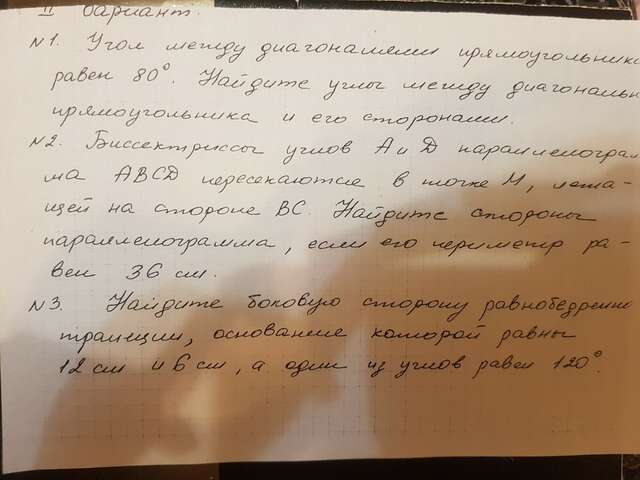 II вариант.
№1. Угол между диагоналями прямоугольника
равен 80°. Найдите углы между диагональю
прямоугольника и его сторонами.
№2. Биссектриссы углов А и D параллелограм
ма ABCD пересекаются в точке М, лежа-
щей на стороне ВС. Найдите стороны
параллелограмма, если его периметр ра-
вен 36 см.
№3. Найдите боковую сторону равнобедренно
трапеции, основание которой равны
12 см и 6 см, а один из углов равен 120°.